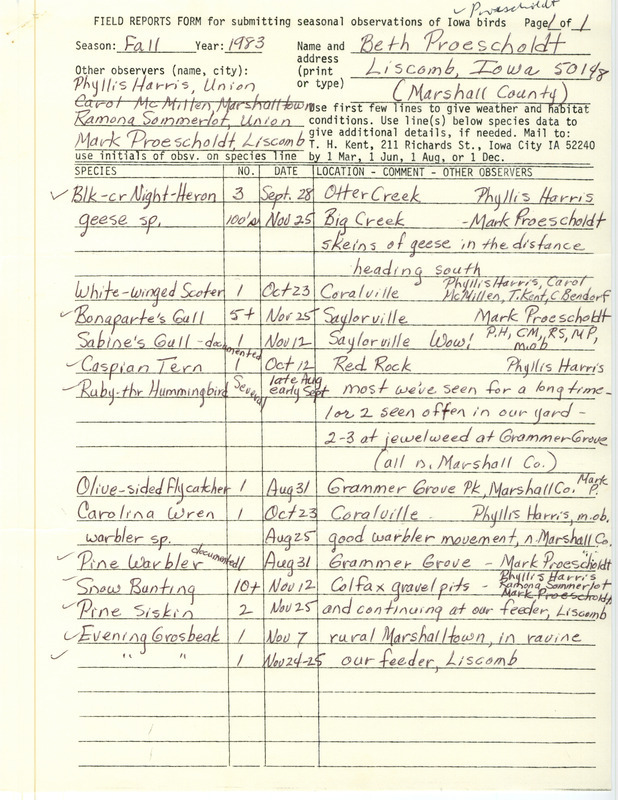 ✓ Proescholdt
FIELD REPORTS FORM for submitting seasonal observations of Iowa birds Page 1 of 1
Season: Fall Year: 1983 Name and address (print or type) Beth Proescholdt
Liscomb, Iowa 50148
(Marshall County)
Other observers (name, city):
Phyllis Harris, Union
Carol McMillen, Marshalltown
Ramona Sommerlot, Union
Mark Proescholdt, Liscomb
use initials of obsv. on species line
Use first few lines to give weather and habitat
conditions. Use line(s) below species data to
give additional details, if needed. Mail to:
T. H. Kent, 211 Richards St., Iowa City IA 52240
by 1 Mar, 1 Jun, 1 Aug, or 1 Dec.
SPECIES NO. DATE LOCATION - COMMENT - OTHER OBSERVERS
✓ Blk-cr Night-Heron 3 Sept. 28 Otter Creek Phyllis Harris
geese sp. 100's Nov 25 Big Creek - Mark Proescholdt
skeins of geese in the distance
heading south
White-winged Scoter 1 Oct 23 Coralville Phyllis Harris, Carol McMillen, T. Kent, C Bendorf
✓ Bonaparte's Gull 5+ Nov 25 Saylorville Mark Proescholdt
Sabine's Gull - documented 1 Nov 12 Saylorville Wow! P.H, CM, RS, MP, m.ob
✓ Caspian Tern 1 Oct 12 Red Rock Phyllis Harris
✓ Ruby-thr Hummingbird Several late Aug early Sept most we've seen for a long time -
1 or 2 seen often in our yard -
2-3 at jewelweed at Grammer Grove
(all n. Marshall Co.)
Olive-sided Flycatcher 1 Aug 31 Grammer Grove Pk, Marshall Co. Mark P.
Carolina Wren 1 Oct 23 Coralville - Phyllis Harris, m.ob.
warbler sp. Aug 25 good warbler movement, n. Marshall Co.
✓ Pine Warbler documented 1 Aug 31 Grammer Grove - Mark Proescholdt
✓ Snow Bunting 10+ Nov 12 Colfax gravel pits - Phyllis Harris Ramona Sommerlot Mark Proescholdt
✓ Pine Siskin 2 Nov 25 and continuing at our feeder, Liscomb
✓ Evening Grosbeak 1 Nov 7 rural Marshalltown, in ravine
✓ " " 1 Nov 24-25 our feeder, Liscomb